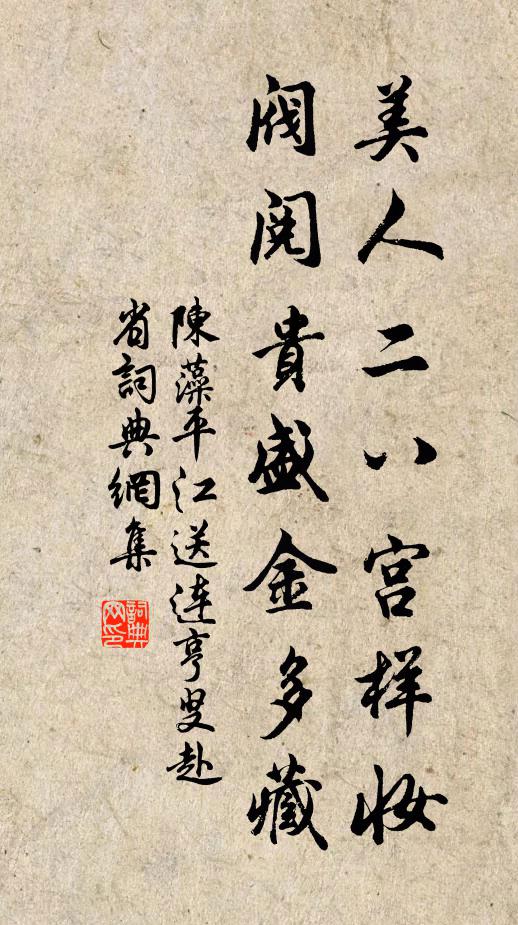 美人二八宫样妆
阀阅贵盛金多藏
陳藻平江送連亨叟赴
省詞典網集
詞典网印